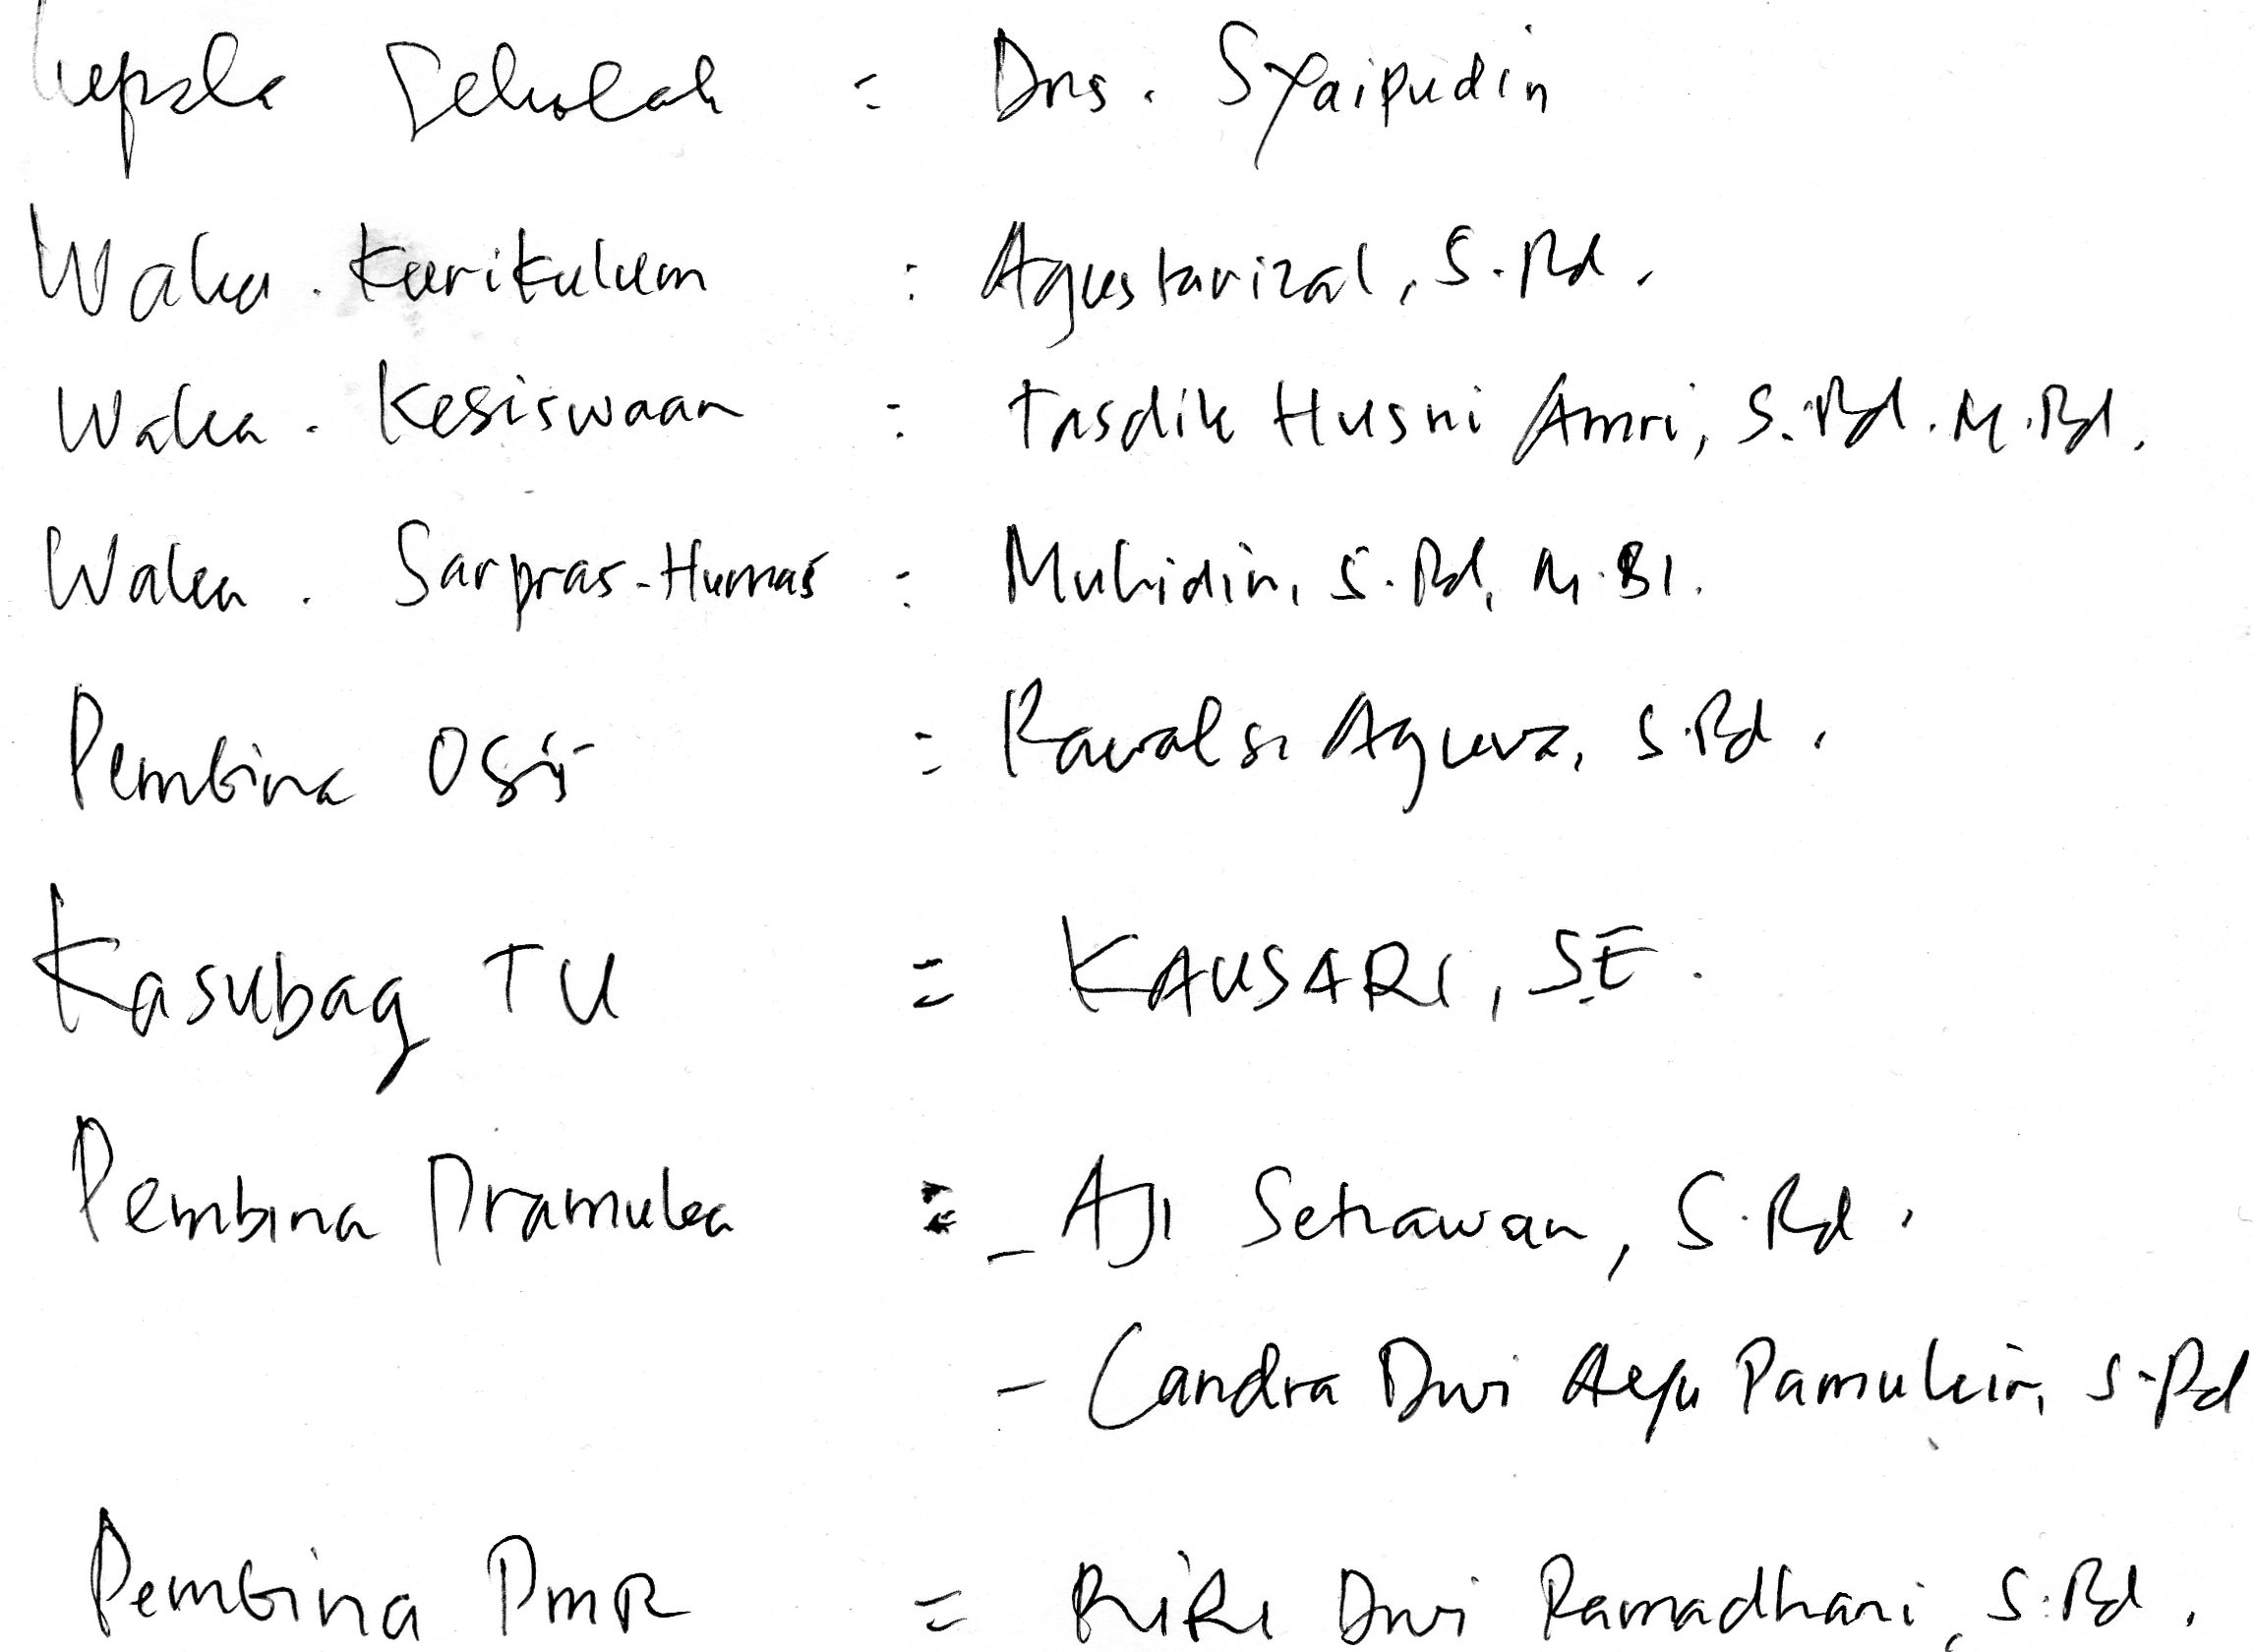 Kepala Sekolah : Drs. Syaipudin
Waka. Kurikulum : Agustarizal, S.Pd.
Waka. Kesiswaan : Tasdik Husni Amri, S.Pd. M.Pd.
Waka. Sarpras-Humas : Muhidin, S.Pd, M.SI.
Pembina Osis : S.Pd.
Kasubag TU = KAUSARI, SE.
Pembina Pramuka : - AJI Setiawan, S.Pd.
- Candra Dwi Ayu Pamukir, S.Pd
Pembina PMR = RiRi Dwi Ramadhani, S.Pd.